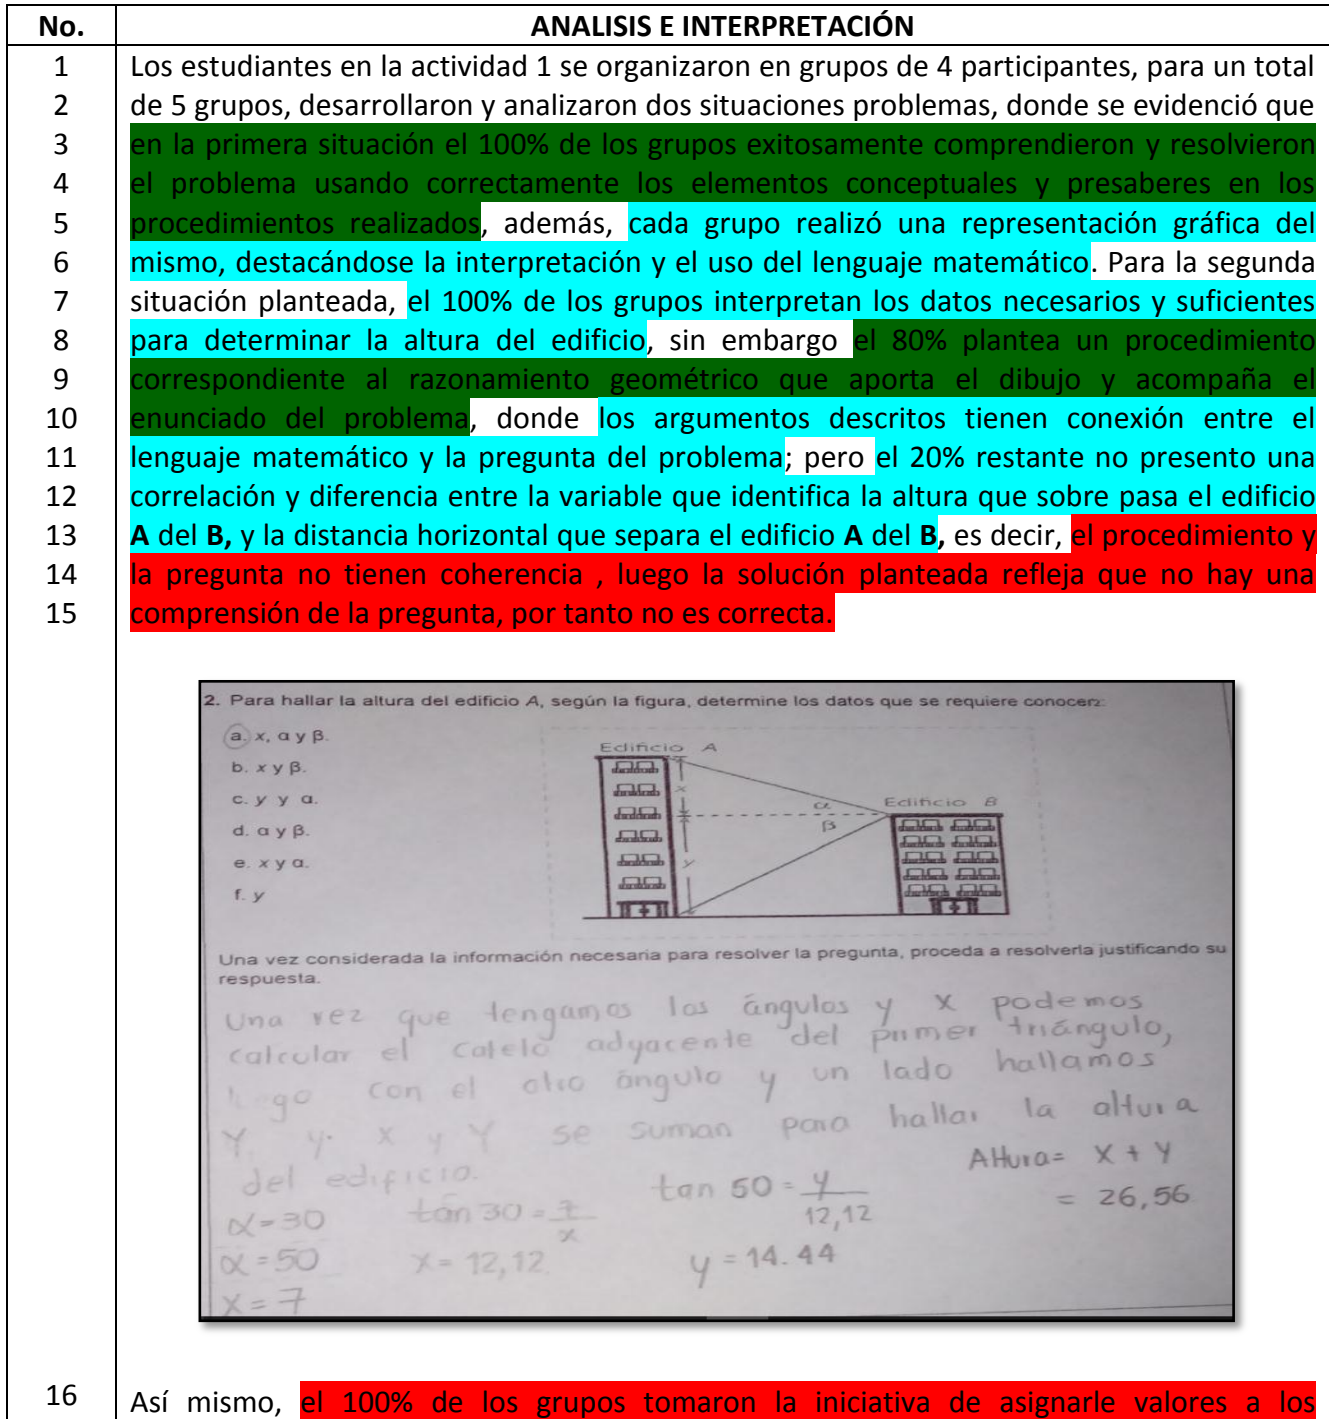 No. ANALISIS E INTERPRETACIÓN
1 Los estudiantes en la actividad 1 se organizaron en grupos de 4 participantes, para un total
2 de 5 grupos, desarrollaron y analizaron dos situaciones problemas, donde se evidenció que
3 en la primera situación el 100% de los grupos exitosamente comprendieron y resolvieron
4 el problema usando correctamente los elementos conceptuales y presaberes en los
5 procedimientos realizados, además, cada grupo realizó una representación gráfica del
6 mismo, destacándose la interpretación y el uso del lenguaje matemático. Para la segunda
7 situación planteada, el 100% de los grupos interpretan los datos necesarios y suficientes
8 para determinar la altura del edificio, sin embargo el 80% plantea un procedimiento
9 correspondiente al razonamiento geométrico que aporta el dibujo y acompaña el
10 enunciado del problema, donde los argumentos descritos tienen conexión entre el
11 lenguaje matemático y la pregunta del problema; pero el 20% restante no presento una
12 correlación y diferencia entre la variable que identifica la altura que sobre pasa el edificio
13 A del B, y la distancia horizontal que separa el edificio A del B, es decir, el procedimiento y
14 la pregunta no tienen coherencia , luego la solución planteada refleja que no hay una
15 comprensión de la pregunta, por tanto no es correcta.
2. Para hallar la altura del edificio A, según la figura, determine los datos que se requiere conocer:
a. x, α y β.
b. x y β.
c. y y α.
d. α y β.
e. x y α.
f. y
Edificio A
x
α
Edificio B
β
y
Una vez considerada la información necesaria para resolver la pregunta, proceda a resolverla justificando su
respuesta.
Una vez que tengamos los ángulos y x podemos
calcular el cateto adyacente del primer triángulo,
con el otro ángulo y un lado hallamos
Y. y. X y Y se suman para hallar la altura
del edificio.
Altura= X + Y
= 26,56
α=30
α=50
X=7
tan 30 = 7/x
x = 12,12
tan 50 = y/12,12
y = 14.44
16 Así mismo, el 100% de los grupos tomaron la iniciativa de asignarle valores a los